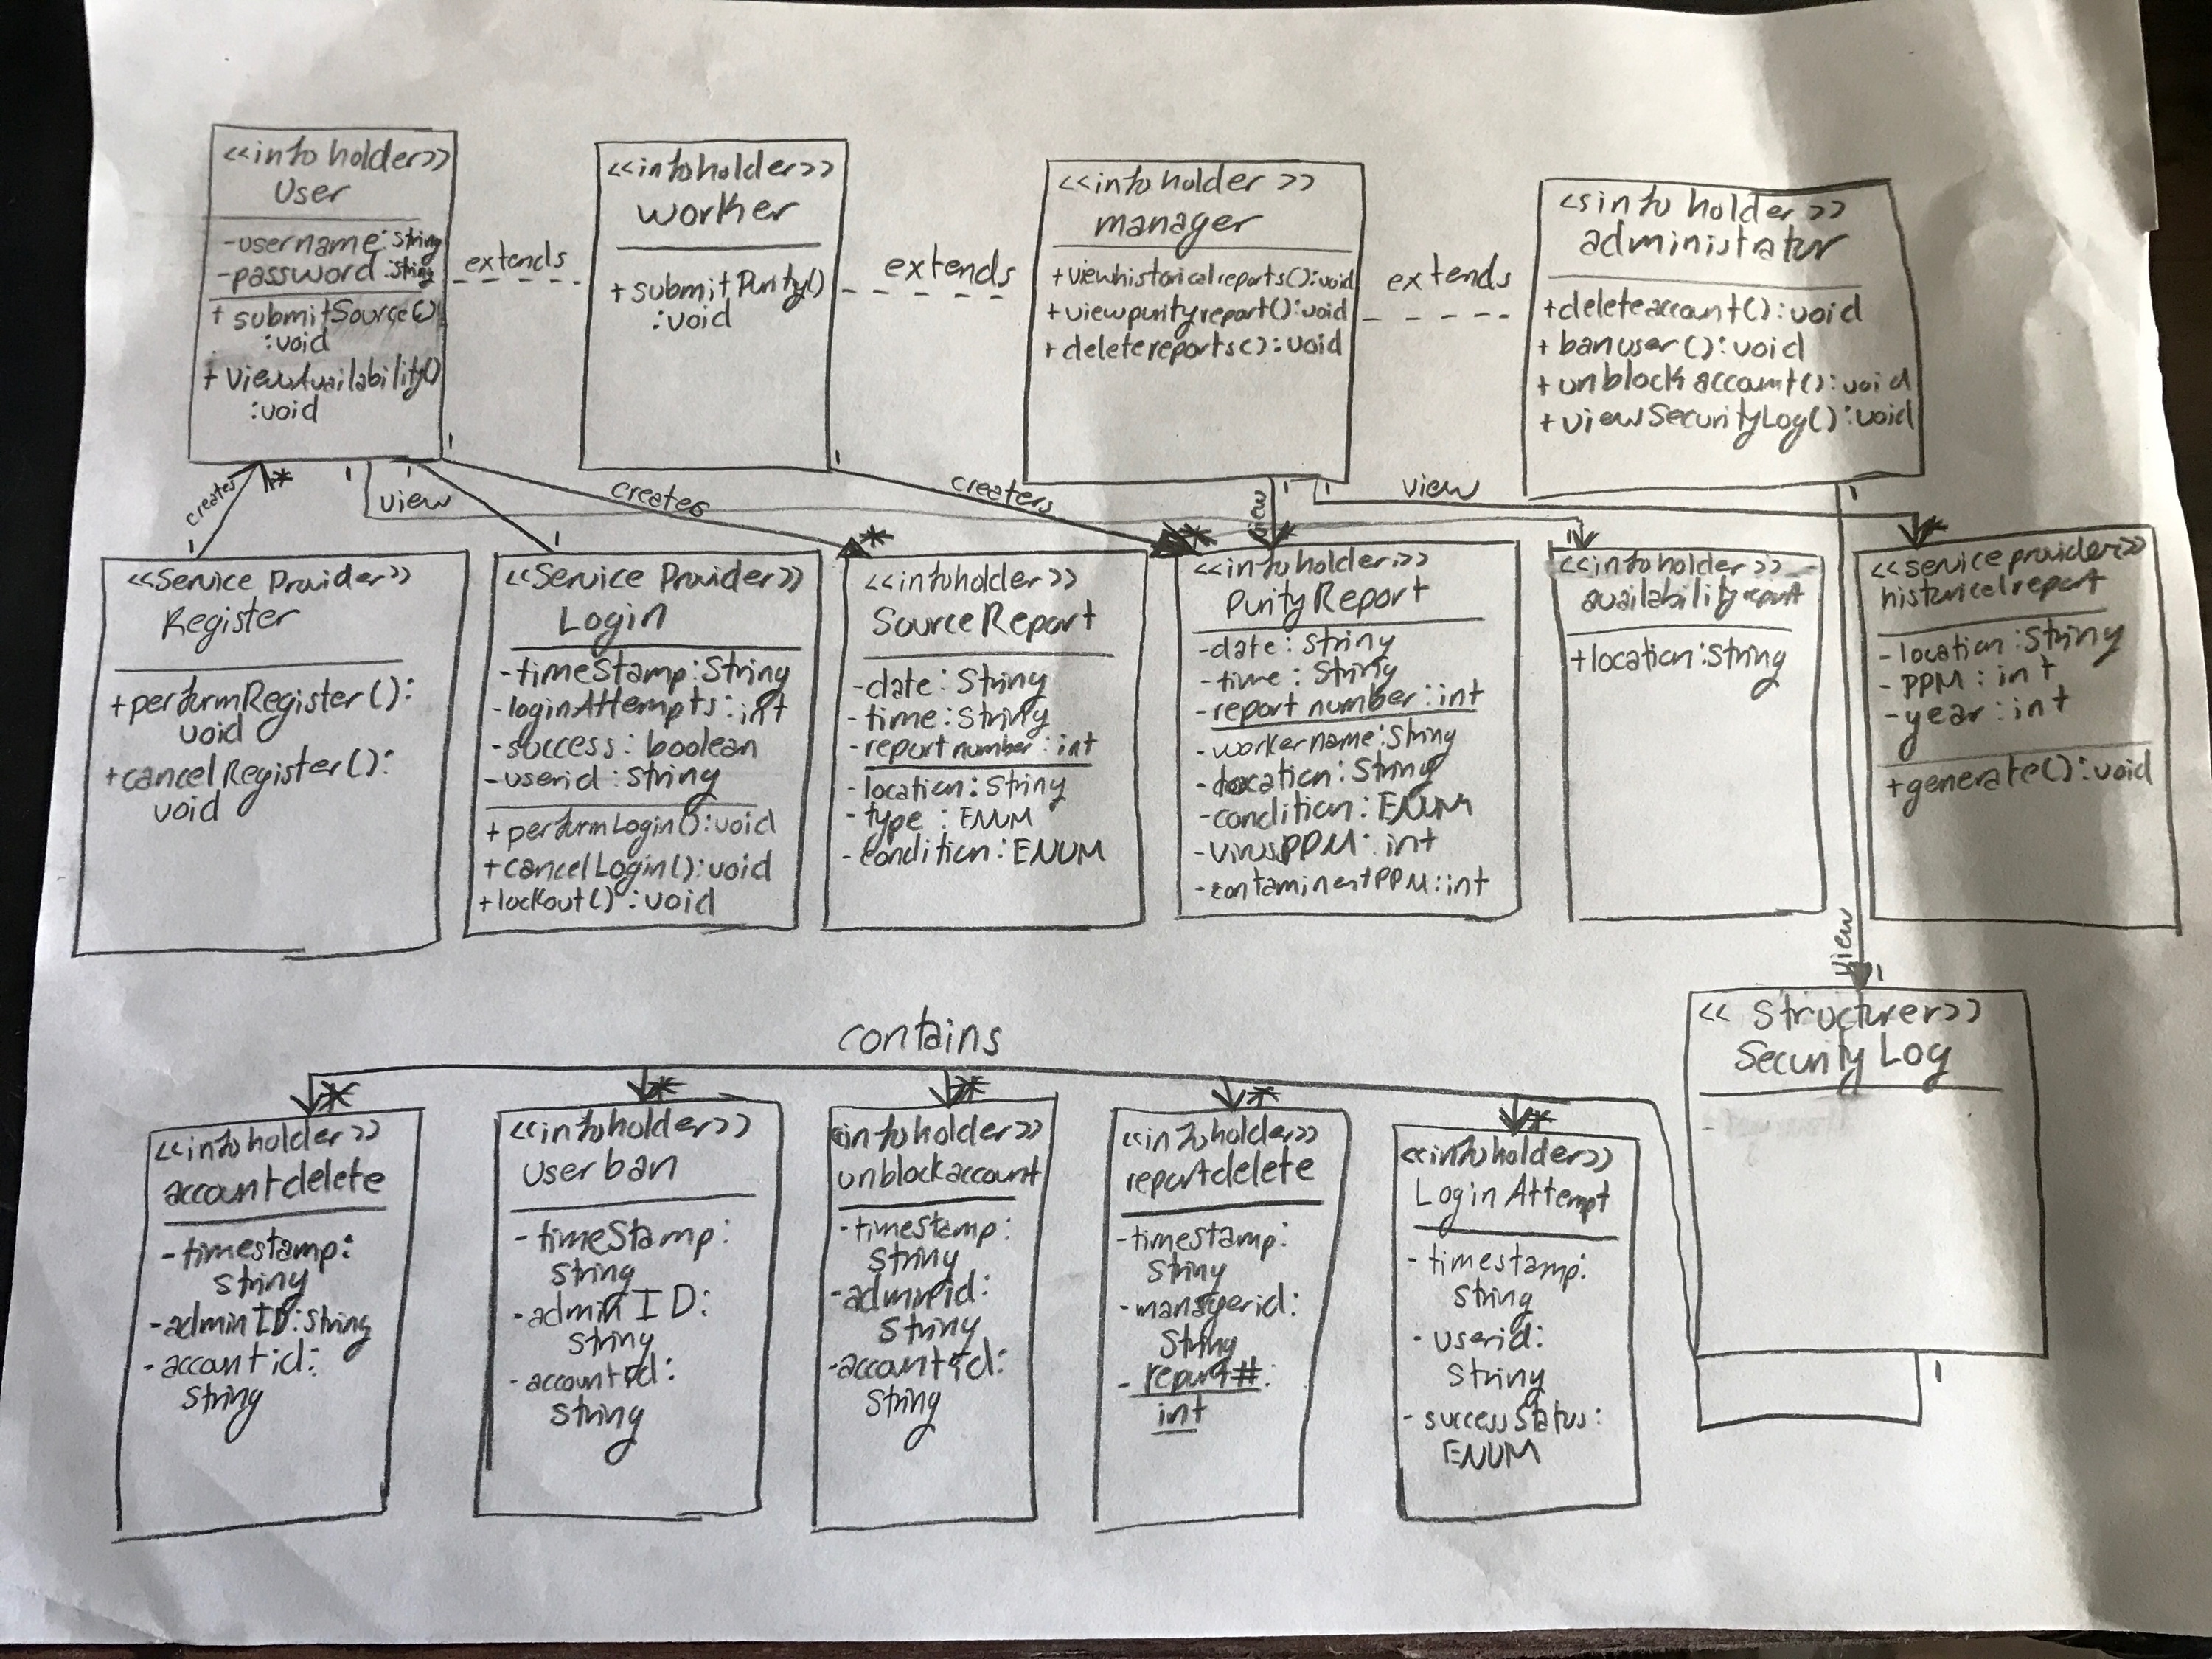 <<infoholder>>
User
-username:string
-password:string
+submitSource()
:void
+viewAvailability()
:void
extends
<<infoholder>>
worker
+submitPurity()
:void
extends
<<infoholder>>
manager
+viewhistoricalreports():void
+viewpurityreport():void
+deletereports():void
extends
<<infoholder>>
administator
+deleteaccount():void
+banuser():void
+unblockaccount():void
+viewSecurityLog():void
creates
1
*
1
view
1
1
1
creates
1
creaters
1
1
view
1
<<Service Provider>>
Register
+performRegister():
void
+cancelRegister():
void
<<Service Provider>>
Login
-timeStamp:String
-loginAttempts:int
-success:boolean
-userid:string
+performLogin():void
+cancelLogin():void
+lockout():void
*
<<infoholder>>
SourceReport
-date:String
-time:String
-reportnumber:int
-location:String
-type:ENUM
-condition:ENUM
*
*
<<infoholder>>
PurityReport
-date:string
-time:String
-reportnumber:int
-workername:String
-location:String
-condition:ENUM
-virusPPM:int
-contaminentPPM:int
<<infoholder>>
availabilityreport
+location:string
*
<<serviceprovider>>
historicalreport
-location:String
-PPM:int
-year:int
+generate():void
view
1
contains
*
<<infoholder>>
accountdelete
-timestamp:
string
-adminID:string
-accountid:
string
*
<<infoholder>>
userban
-timeStamp:
string
-adminID:
string
-accountid:
string
*
<<infoholder>>
unblockaccount
-timestamp:
string
-adminid:
string
-accountid:
string
*
<<infoholder>>
reportdelete
-timestamp:
string
-managerid:
string
-report#:
int
*
<<infoholder>>
LoginAttempt
-timestamp:
string
-userid:
string
-successStatus:
ENUM
<<Structurer>>
Security Log
1